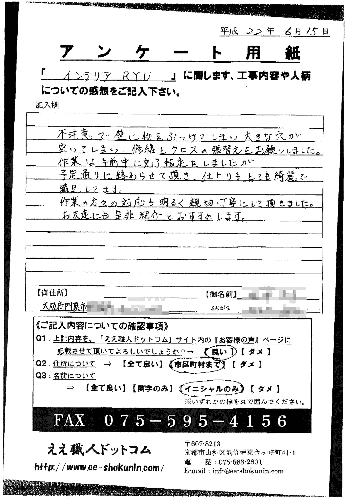 平成 22年 6月15日
アンケート用紙
「 インテリア RYU 」に関します、工事内容や人柄
についての感想をご記入下さい。
記入欄
不注意で壁に物をぶつけてしまい大きな穴が
空いてしまい、修繕とクロスの張替えをお願いしました。
作業は午前中に
予定通りに終わらせて頂き、仕上りもとても綺麗で
満足してます。
作業の方々の対応も明るく親切丁寧にして頂きました。
お友達にも是非紹介とおすすめします。
【御住所】
【御名前】
大阪府
《ご記入内容についての確認事項》
Q1:上記内容を、「ええ職人ドットコム」サイト内の『お客様の声』ページに
記載させて頂いてよろしいでしょうか? → 【 良い 】 【 ダメ 】
Q2:住所について → 【全て良い】 【市区町村まで】 【 ダメ 】
Q3:名前について
→ 【全て良い】 【苗字のみ】 【イニシャルのみ】 【 ダメ 】
※いずれかの種を丸で囲んでください。
FAX 075-595-4156
ええ職人ドットコム
http://www.ee-shokunin.com/
〒607-8213
電 話:075-
E-mail:info@ee-shokunin.com